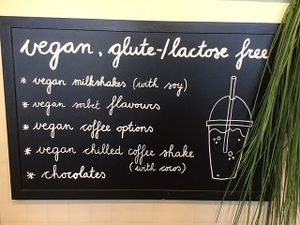 vegan, glute-/lactose free
* vegan milkshakes (with soy)
* vegan sorbet flavours
* vegan coffee options
* vegan chilled coffee shake
* chocolates (with cocos)